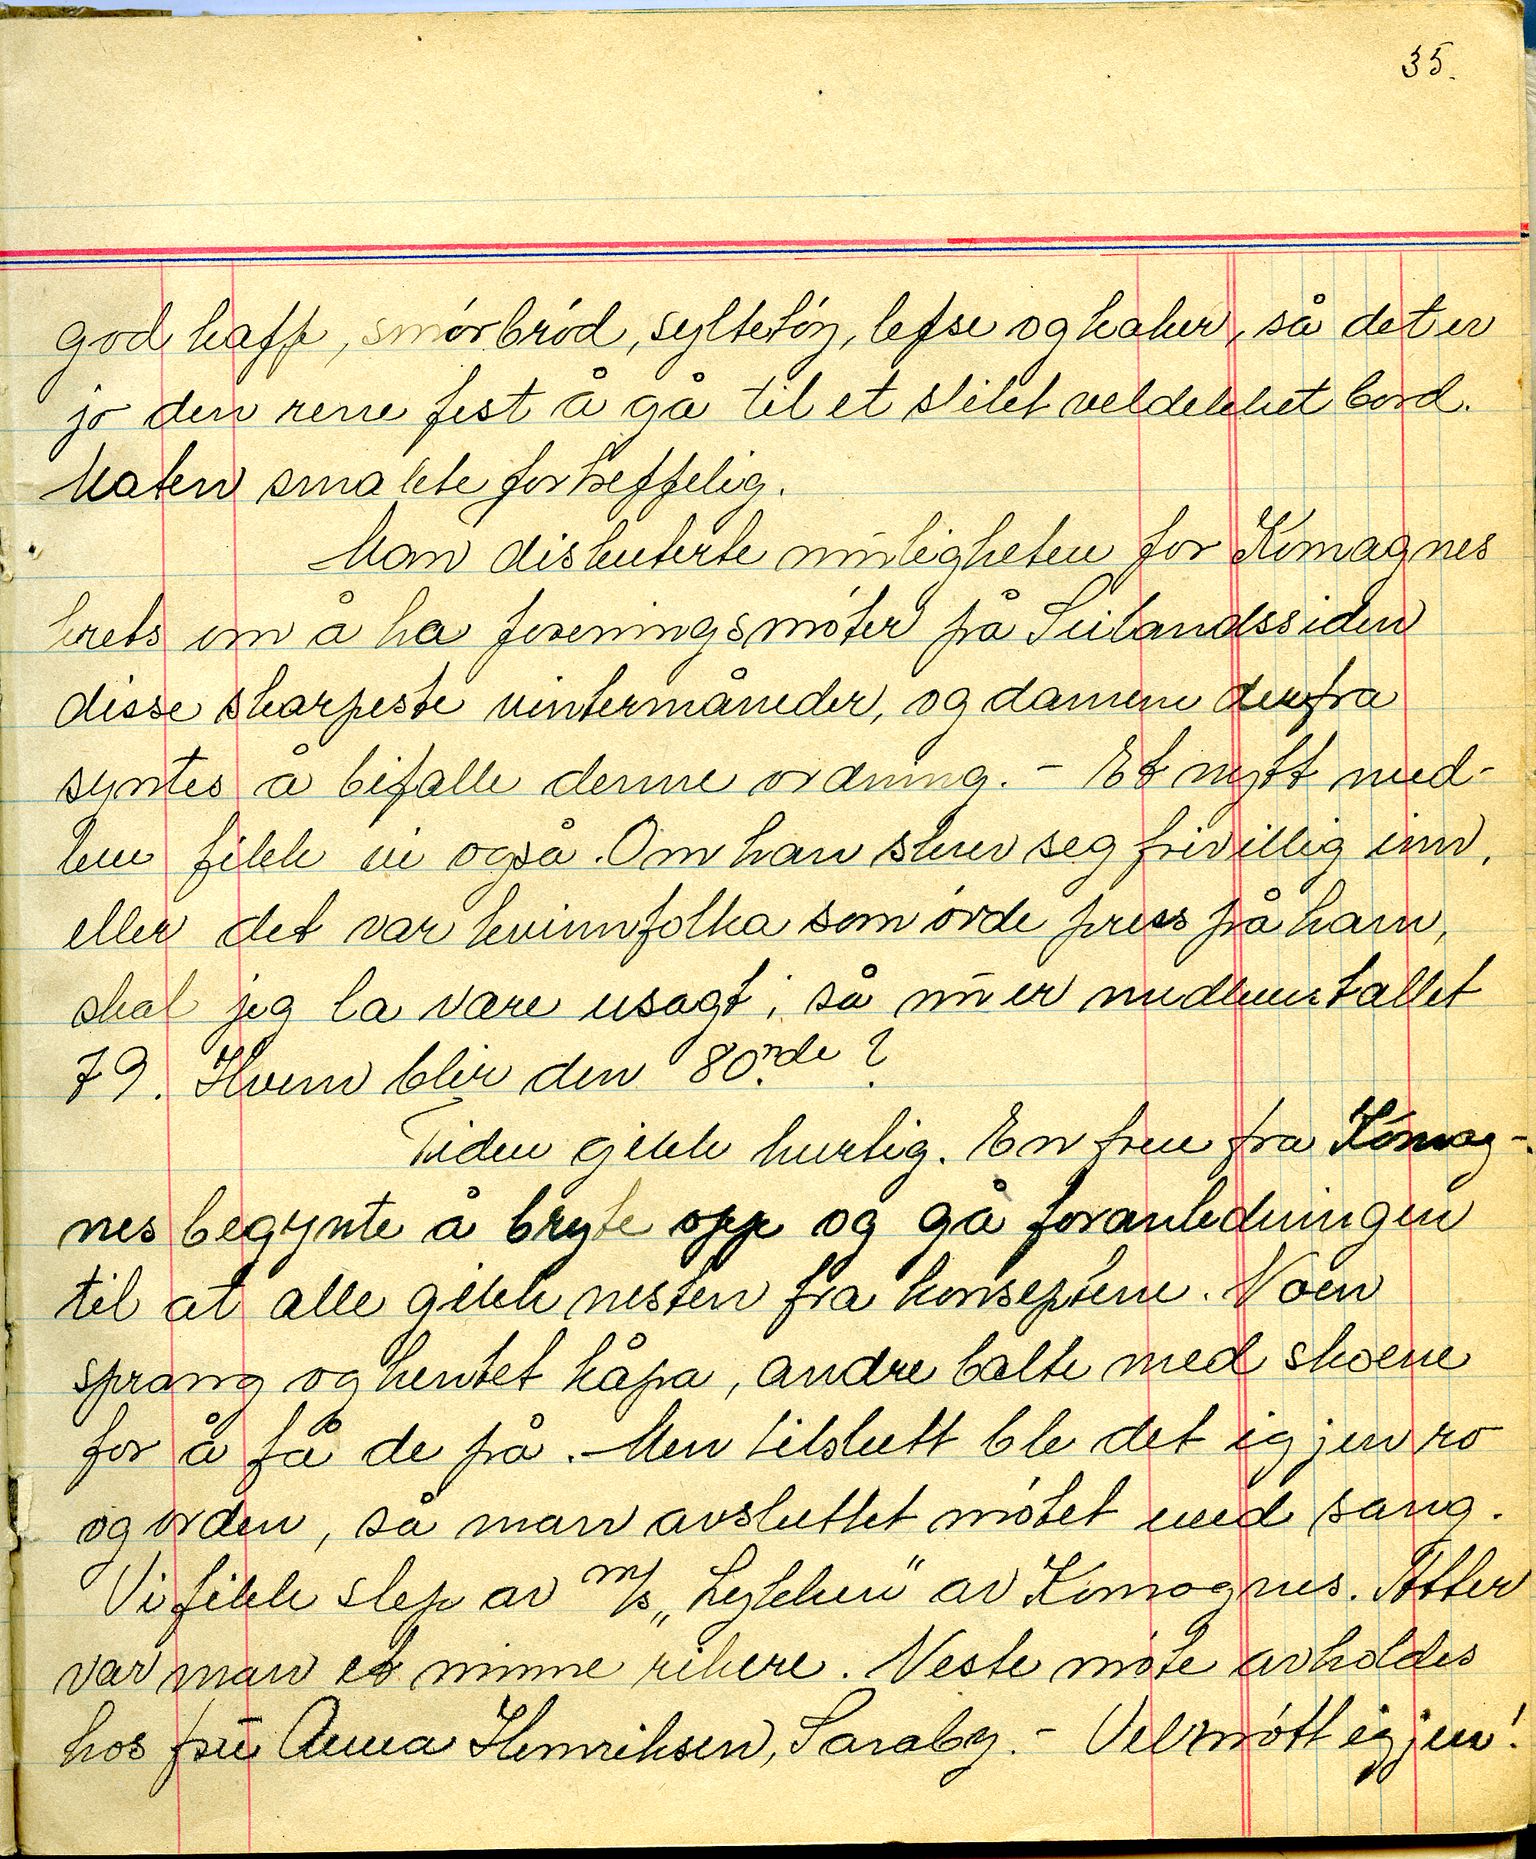 35.
god kaffe, smørbrød, syltetøy, lefse og kaker, så det er
jo den rene fest å gå til et slikt veldekket bord.
Maten smakte fortreffelig.
Man diskuterte muligheten for Komagnes
krets om å ha foreningsmøter på Seilandssiden
disse skarpeste vintermåneder, og damene derfra
syntes å bifalle denne ordning. - Et nytt med-
lem fikk vi også. Om han skrev seg frivillig inn,
eller det var kvinnfolka som øvde press på ham,
skal jeg la være usagt; så nu er medlemstallet
79. Hvem blir den 80nde?
Tiden gikk hurtig. En frue fra Komag-
nes begynte å bryte opp og gå foranledningen
til at alle gikk nesten fra konseptene. Noen
sprang og hentet kåpa, andre balte med skoene
for å få de på. Men tilslutt ble det igjen ro
og orden, så man avsluttet møtet med sang.
Vi fikk slep av m/s „Lykken" av Komagnes. Atter
var man et minne rikere. Neste møte avholdes
hos fru Anna Henriksen, Saraby. - Vel møtt igjen!